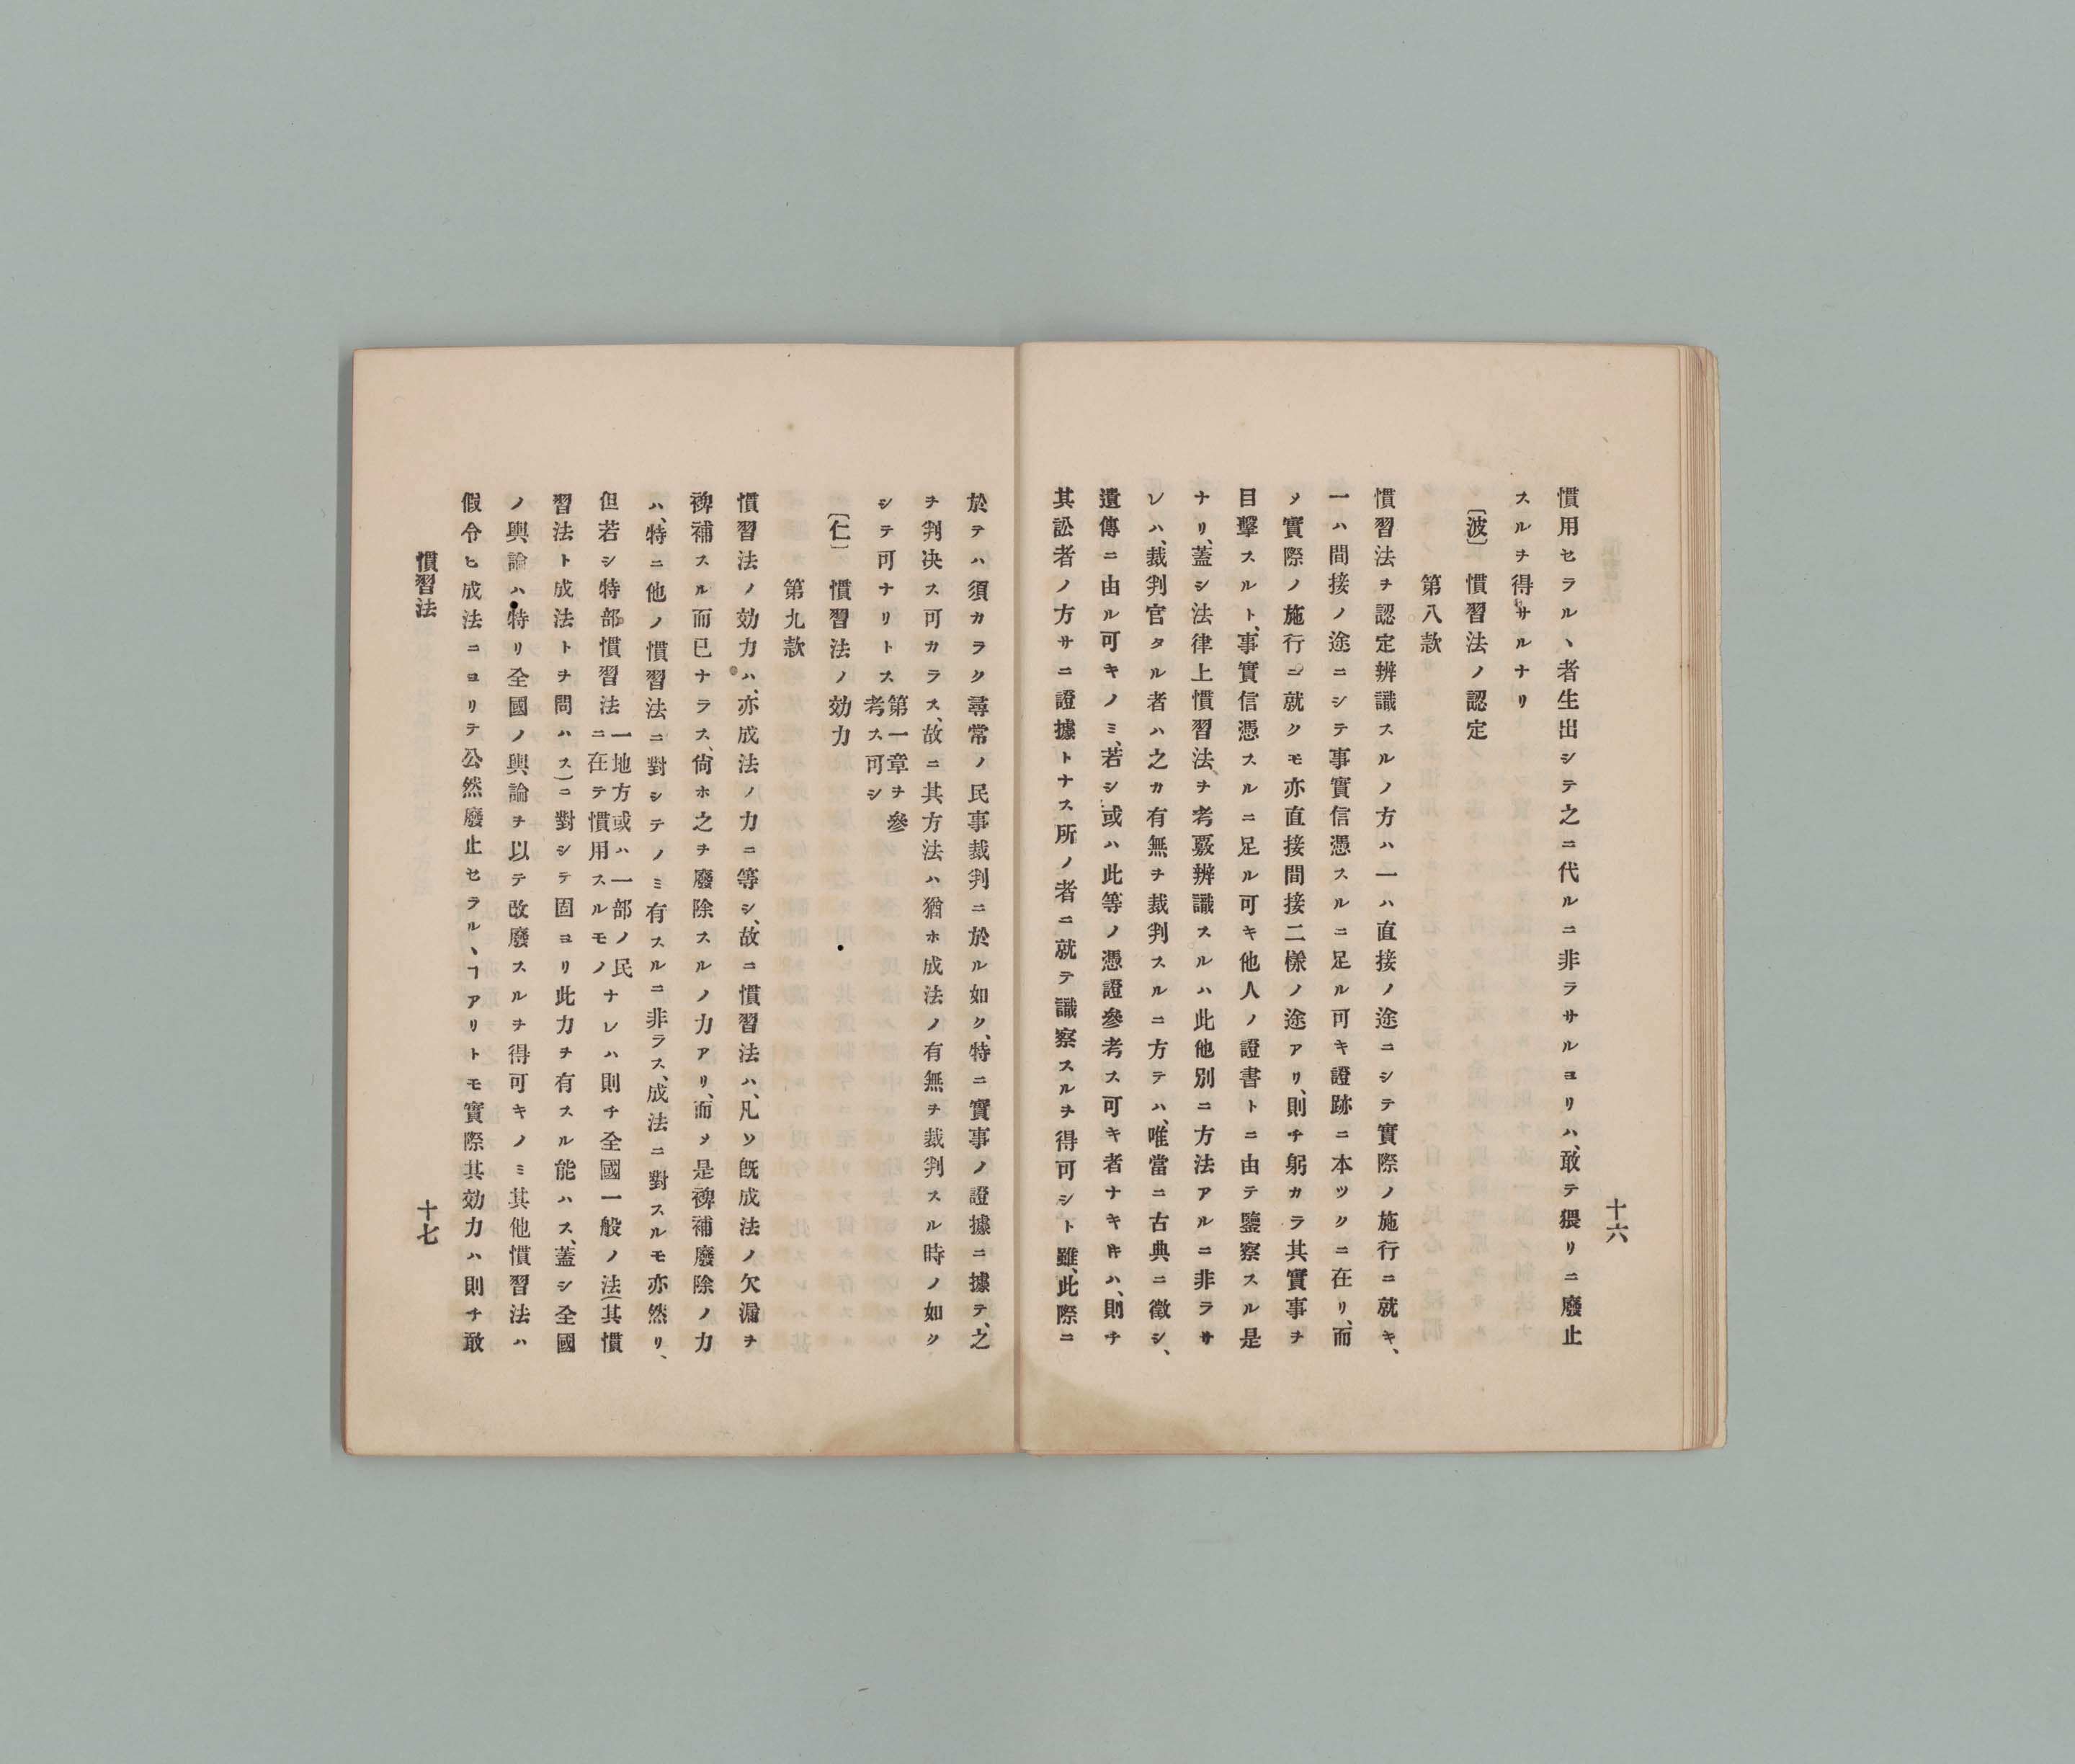 十六
慣用セラル、者生出シテ之ニ代ルニ非ラサルヨリハ、敢テ猥リニ廢止
スルヲ得サルナリ
〔波〕 慣習法ノ認定
第八款
慣習法ヲ認定辨識スルノ方ハ一ハ直接ノ途ニシテ實際ノ施行ニ就キ、
一ハ間接ノ途ニシテ事實信憑スルニ足ル可キ證跡ニ本ツクニ在リ、而
〆實際ノ施行ニ就クモ亦直接間接二樣ノ途アリ、則チ躬カラ其實事ヲ
目擊スルト、事實信憑スルニ足ル可キ他人ノ證書トニ由テ鑒察スル是
ナリ、蓋シ法律上慣習法ヲ考覈辨識スルハ此他別ニ方法アルニ非ラサ
レハ、裁判官タル者ハ之カ有無ヲ裁判スルニ方テハ、唯當ニ古典ニ徵シ、
遺傳ニ由ル可キノミ、若シ或ハ此等ノ憑證參考ス可キ者ナキ𪜈ハ、則チ
其訟者ノ方サニ證據トナス所ノ者ニ就テ識察スルヲ得可シト雖、此際ニ
於テハ須カラク尋常ノ民事裁判ニ於ル如ク、特ニ實事ノ證據ニ據テ、之
ヲ判決ス可カラス、故ニ其方法ハ猶ホ成法ノ有無ヲ裁判スル時ノ如ク
シテ可ナリトス 第一章ヲ參考ス可シ
〔仁〕 慣習法ノ効力
第九款
慣習法ノ効力ハ、亦成法ノ力ニ等シ、故ニ慣習法ハ、凡ソ旣成法ノ欠漏ヲ
裨補スル而已ナラス、尙ホ之ヲ廢除スルノ力アリ、而〆是裨補廢除ノ力
ハ、特ニ他ノ慣習法ニ對シテノミ有スルニ非ラス、成法ニ對スルモ亦然リ、
但若シ特部慣習法 一地方或ハ一部ノ民ニ在テ慣用スルモノ ナレハ則チ全國一般ノ法(其慣
習法ト成法トヲ問ハス)ニ對シテ固ヨリ此力ヲ有スル能ハス、蓋シ全國
ノ輿論ハ特リ全國ノ輿論ヲ以テ改廢スルヲ得可キノミ其他慣習法ハ
假令ヒ成法ニヨリテ公然廢止セラル、ヿアリトモ實際其効力ハ則チ敢
慣習法
十七